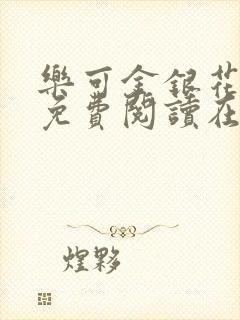 樂可金銀花
免費閱讀在
煌夥